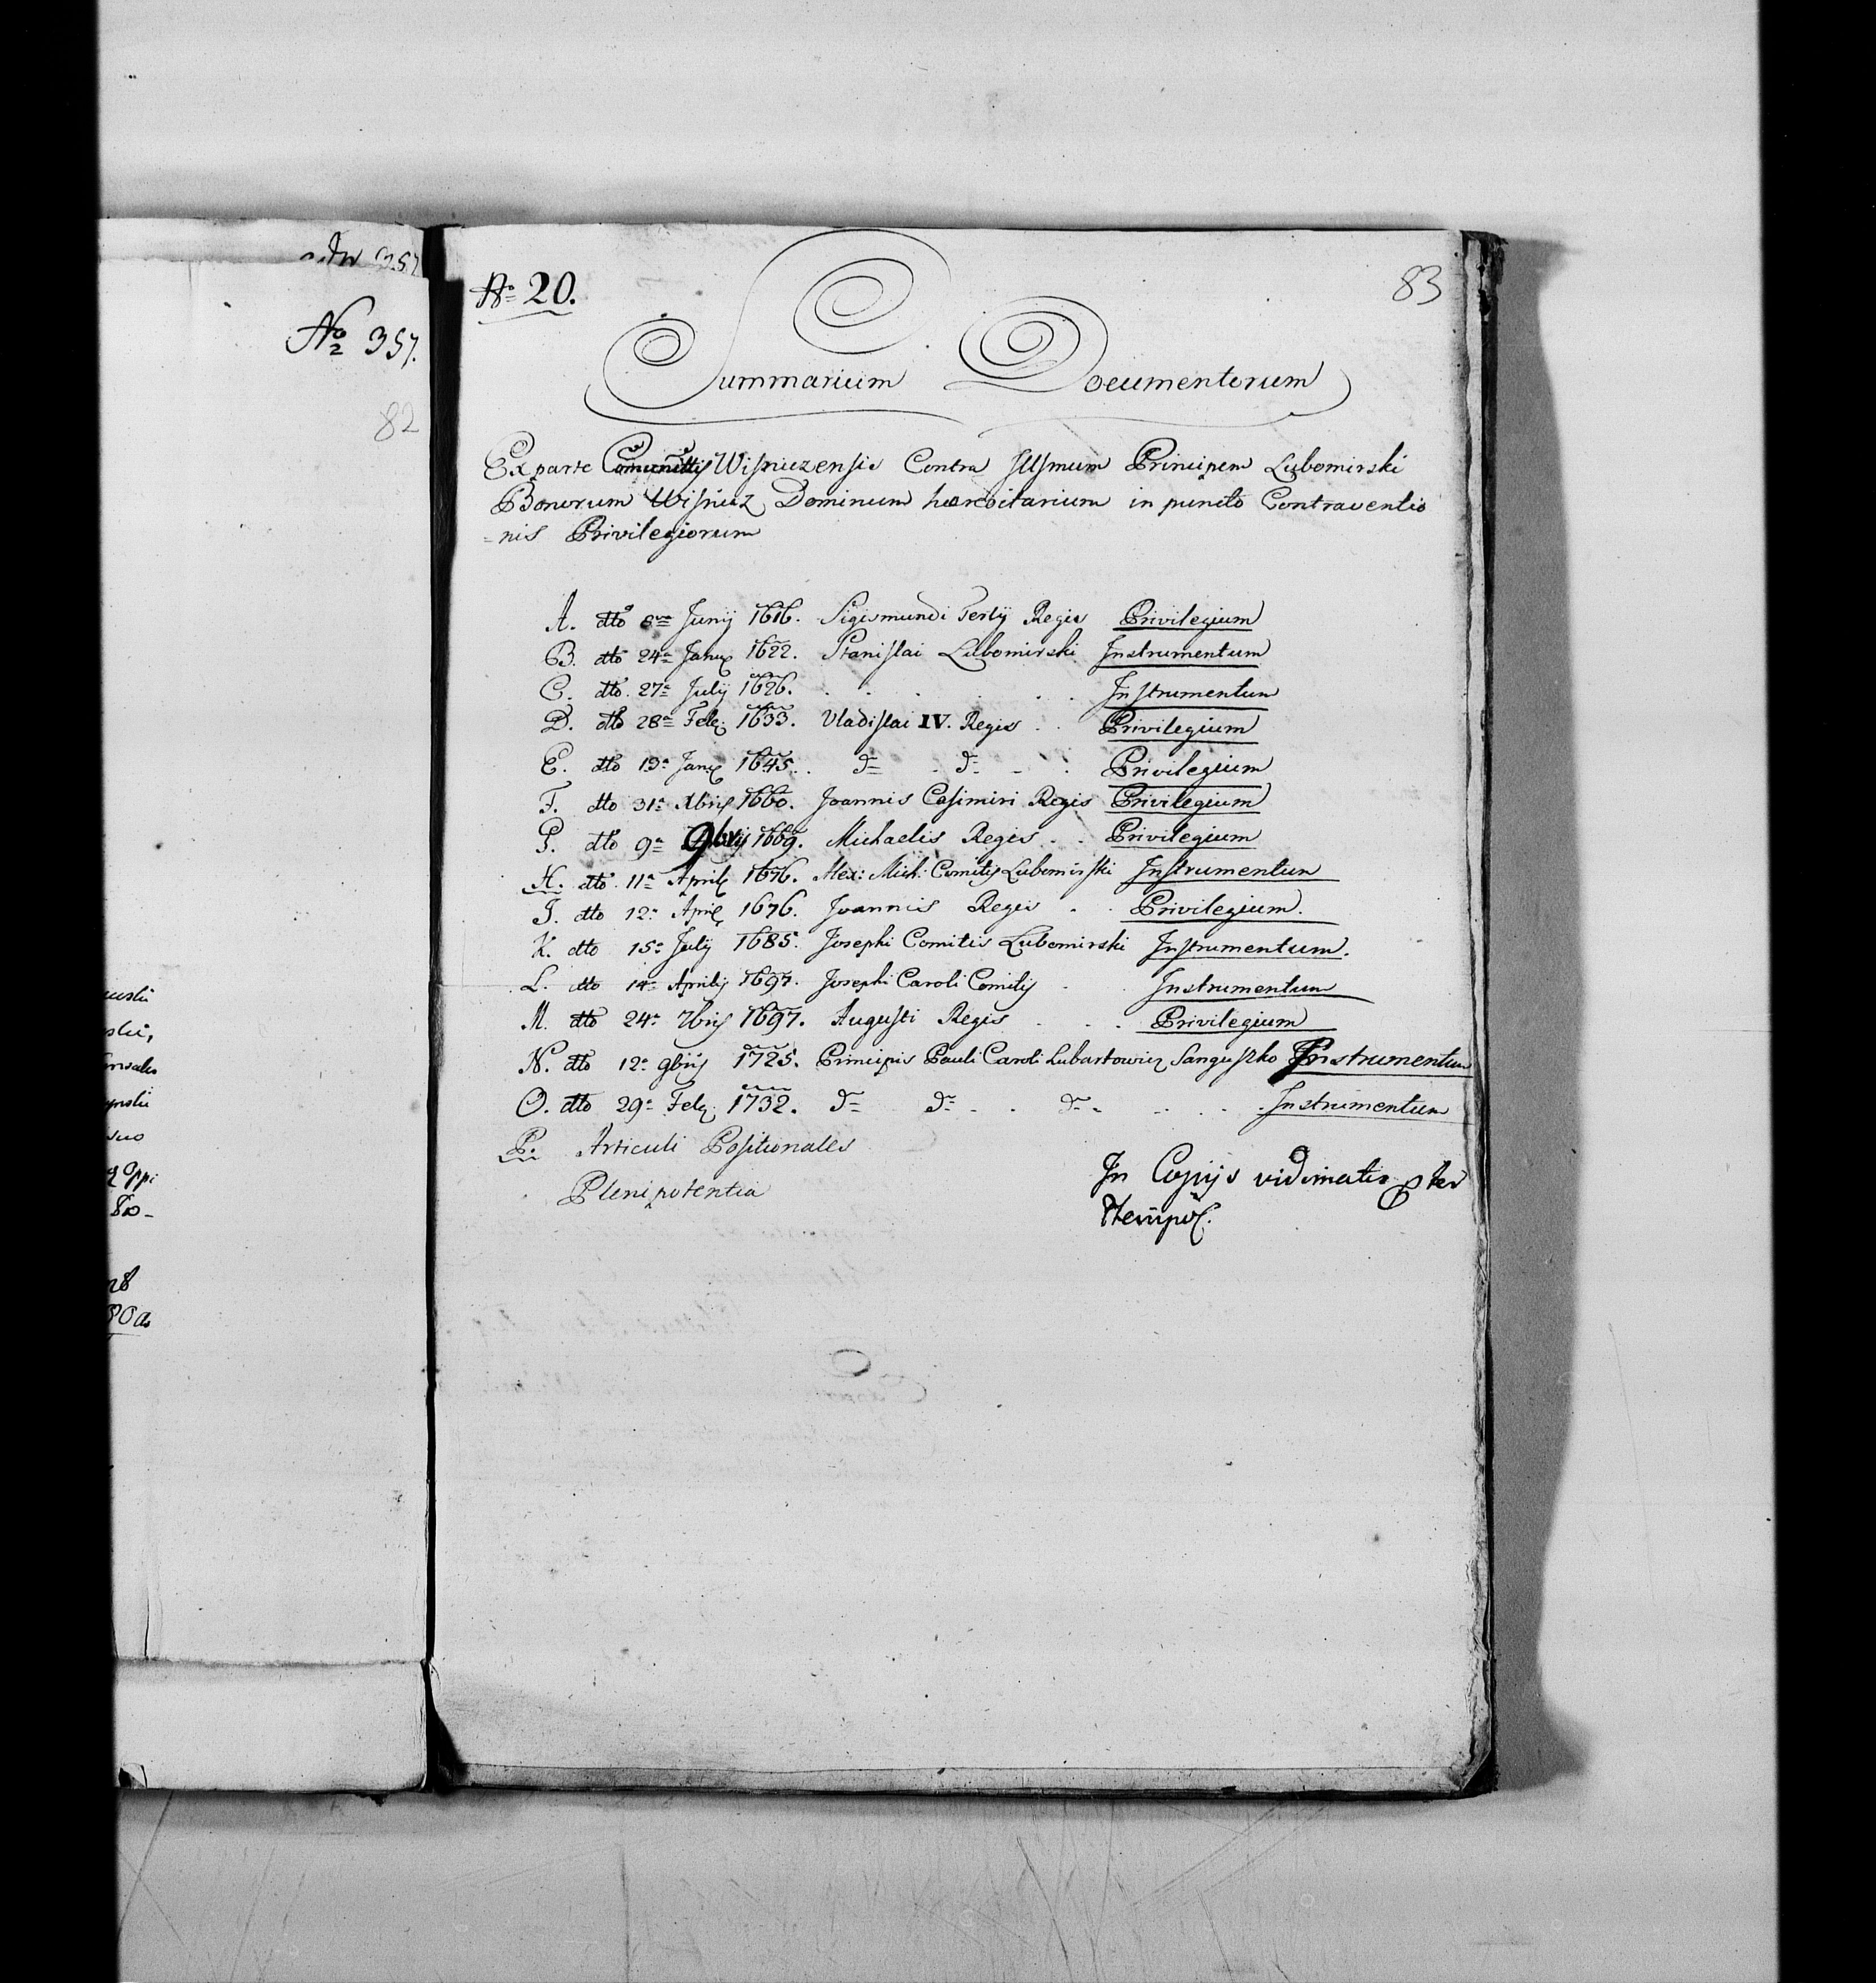 No 357.
82
No 20.
83
Summarium Documentorum
Ex parte Comunittis Wisniczensis Contra Illsmum Principem Lubomirski
Bonorum Wisnicz Dominum haereditarium in puncto Contraventio
=nis Privilegiorum
A. dto 8va Junij 1616. Sigismundi Tertij Regis Privilegium
B. dto 24a Janu 1622. Stanislai Lubomirski Instrumentum
C. dto 27a Julij 1626. . . . . . Instrumentum
D. dto 28a Feb. 1633. Vladislai IV. Regis . . Privilegium
E. dto 19a Jan 1645. . do . do . . Privilegium
F. dto 31a Xbris 1660. Joannis Casimiri Regis Privilegium
G. dto 9a 9bris 1669. Michaelis Regis . . Privilegium
H. dto 11a April 1676. Alex: Mich: Comitis Lubomirski Instrumentum
J. dto 12a April 1676. Joannis Regis . . Privilegium.
K. dto 15a Julij 1685. Josephi Comitis Lubomirski Instrumentum.
L. dto 14a Aprilis 1697. Josephi Caroli Comitis . . Instrumentum
M. dto 24a 7bris 1697. Augusti Regis . . . Privilegium
N. dto 12a 9bris 1725. Principis Pauli Caroli Lubartowicz Sanguszko Instrumentum
O. dto 29a Feb. 1732. do do . . do . . . . Instrumentum
P. Articuli Positionales
Plenipotentia
In Copijs vidimatis